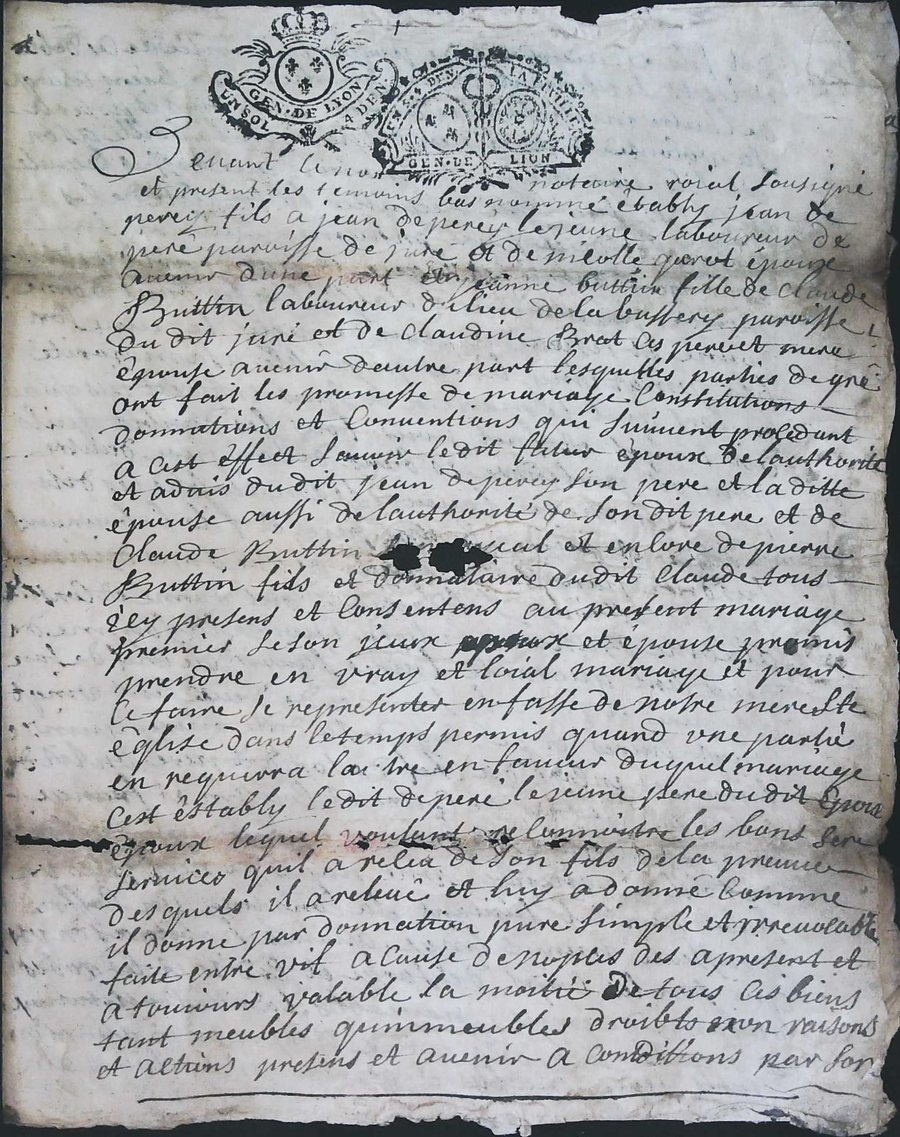 GEN. DE LYON
UN SOL 4 DEN
UN S. 4 DEN LA FEUILLE
GEN. DE LION
Devant le notaire roial sousigné
et present les temoins bas nommé êtably jean de
perey fils a jean deperey le jeune laboureur de
peré paroisse de juré et de nicolle gerot épouse
avenir dune part et jeanne buttin fille de claude
Buttin laboureur du lieu de la bussery paroisse
du dit juré et de claudine Brat ces pere et mere
êpouse avenir dautre part lesquelles parties de gré
ont fait les promesse de mariage Constitutions
donnations et Conventions qui suivent procedant
a cast êffect sauoir ledit futur êpoux de lauthorité
et aduis du dit jean deperey son pere et la ditte
êpouse aussi de lauthorité de son dit pere et de
Claude Buttin et encore de pierre
Buttin fils et donnataire dudit Claude tous
icy presens et Consentens au present mariage
premier se son jeux et épouse promis
prendre en vray et loial mariage et pour
ce faire se representer en fasse de notre mere ste
êglise dans le temps permis quand vne partie
en requierra lautre en faueur duquel mariage
cest êstably ledit de peré le jeune pere du dit
époux lequel voulant reconnoitre les bons
services quil a relea de son fils de la preuue
desquels il a releuê et luy a donné Comme
il donne par donnation pure simple et irreuocable
faite entre vif a cause de nopces des apresent et
a toujours valable la moitié de tous ces biens
tant meubles quimmeubles droibts non raisons
et actions presens et avenir a conditions par son